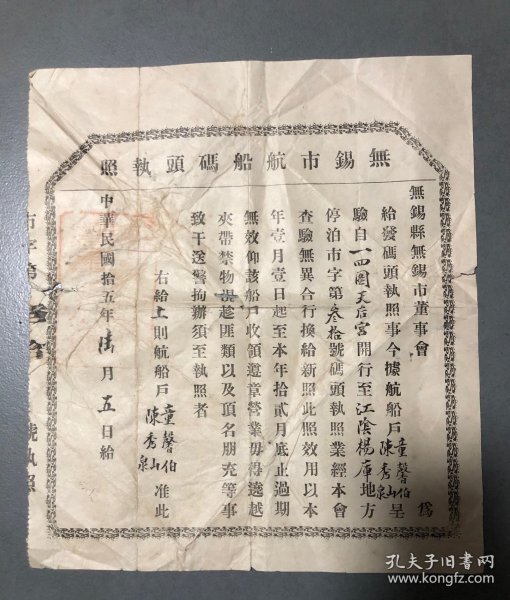 無錫市航船碼頭執照
無錫縣無錫市董事會 為
給發碼頭執照事今據航船戶童馨伯陳秀山泉呈
驗自一四圖天后宮開行至江陰楊厙地方
停泊市字第叁拾號碼頭執照業經本會
查驗無異合行換給新照此照效用以本
年壹月壹日起至本年拾貳月底止過期
無效仰該船戶收領遵章營業毋得違越
夾帶禁物裝趁匪類以及頂名朋充等事
致干送警拘辦須至執照者
右給上則航船戶童馨伯陳秀山泉准此
中華民國拾五年 月五日給
市字第叁拾號執照
孔夫子旧书网
www.kongfz.com